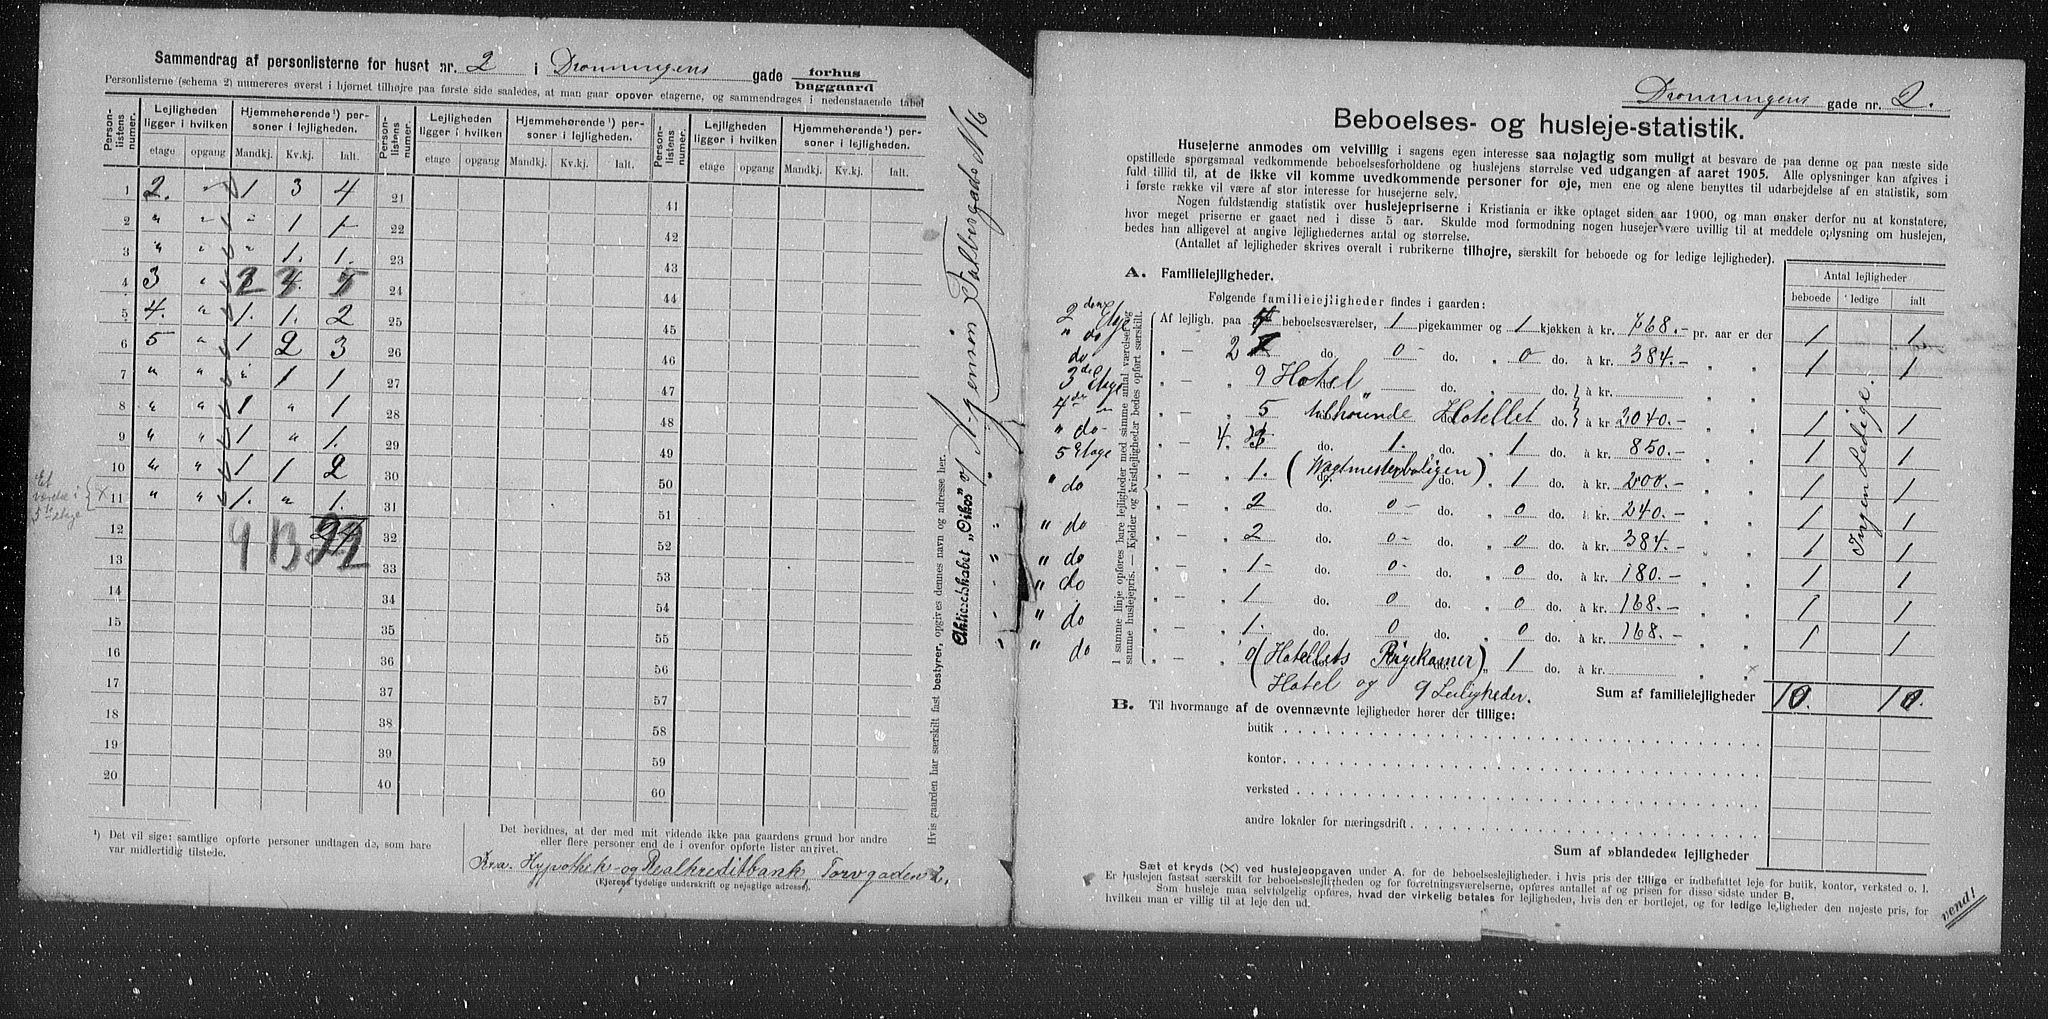 Sammendrag af personlisterne for huset nr. 2 i Dronningens gade forhus
baggaard
Personlisterne (schema 2) numereres øverst i hjørnet tilhøjre paa første side saaledes, at man gaar opover etagerne, og sammendrages i nedenstaaende tabel
Personlistens numer. Lejligheden ligger i hvilken Hjemmehørende¹) personer i lejligheden. Personlistens numer. Lejligheden ligger i hvilken Hjemmehørende¹) personer i lejligheden. Personlistens numer. Lejligheden ligger i hvilken Hjemmehørende¹) personer i lejligheden.
etage opgang Mandkj. Kv.kj. Ialt. etage opgang Mandkj. Kv.kj. Ialt. etage opgang Mandkj. Kv.kj. Ialt.
1 2. " 1 3 4 21 41
2 " " " 1 1 22 42
3 " " " 1. 1. 23 43
4 3 " 24 44
5 4. " 1. 1. 2 25 45
6 5 " 1 2 3 26 46
7 " " " 1 1 27 47
8 " " 1 " 1 28 48
9 " " 1 " 1. 29 49
10 " " 1 1 2 30 50
Et værelse i 5te etage
11 " " 1. " 1. 31 51
12 9 13 22 32 52
13 33 53
14 34 54
15 35 55
16 36 56
17 37 57
18 38 58
19 39 59
20 40 60
¹) Det vil sige: samtlige opførte personer undtagen de, som bare
var midlertidig tilstede.
Det bevidnes, at der med mit vidende ikke paa gaardens grund bor andre
eller flere personer end de i ovenfor opførte lister anrivet.
Kra. Hypothek- og Realkreditbank, Torvgaden 2.
(Kjerens tydelige underskrift og nøjagtige adresse)
Hvis gaarden har særskilt fast bestyrer, opgives dennes navn og adresse her.
Aktieselskabet „Oikos"
Dronningens gade nr. 2.
Beboelses- og husleje-statistik.
Husejerne anmodes om velvillig i sagens egen interesse saa nøjagtig som muligt at besvare de paa denne og paa næste side
opstillede spørgsmaal vedkommende beboelsesforholdene og huslejens størrelse ved udgangen af aaret 1905. Alle oplysninger kan afgives i
fuld tillid til, at de ikke vil komme uvedkommende personer for øje, men ene og alene benyttes til udarbejdelse af en statistik, som
i første række vil være af stor interesse for husejerne selv.
Nogen fuldstændig statistik over huslejepriserne i Kristiania er ikke optaget siden aar 1900, og man ønsker derfor nu at konstatere,
hvor meget priserne er gaaet ned i disse 5 aar. Skulde mod formodning nogen husejer være uvillig til at meddele oplysning om huslejen,
bedes han alligevel at angive lejlighedernes antal og størrelse.
(Antallet af lejligheder skrives overalt i rubrikerne tilhøjre, særskilt for beboede og for ledige lejligheder).
A. Familielejligheder.
Antal lejligheder
beboede ledige ialt
Følgende familielejligheder findes i gaarden:
I samme linje opføres bare lejligheder med samme antal værelser og
samme huslejepris. — Kjelder og kvistlejligheder bedes opført særskilt.
2den Etage Af lejligh. paa 4 beboelsesværelser, 1 pigekammer og 1 kjøkken à kr. 768.- pr. aar er der 1 1
" do " — 2 do. 0 - do. " 0 do. à kr. 384.- " " 1 1
do " — 9 Hotel do. do. à kr.
3de Etage 5 tilhørende Hotellet do. à kr. 2040.- 1 1
4de " — 4. do. 1. do. 1 do. à kr. 850.- 1 1
" do - 1. (Vagtmesterboligen) 1 do. à kr. 200.- 1 1
5 Etage 2 do. 0 - do. 0 do. à kr. 240.- 1 1
" do 2 do. 0 - do. 0 do. à kr. 384.- 1 1
" do 1 - do. 0 - do. 0 do. à kr. 180.- 1 1
" do 1 do. 0 do. 0 do. à kr. 168.- 1 1
" do 1. do. 0 do. 0 do. à kr. 168.- 1 1
" do (Hotellets Pigekamer) " 1 do. à kr.
" do
Ingen Ledige.
Hotel og 9 Leiligheder. Sum af familielejligheder 10. 10.
B. Til hvormange af de ovennævnte lejligheder hører der tillige:
butik
kontor
verksted
andre lokaler for næringsdrift
Sum af »blandede« lejligheder
Sæt et kryds (X) ved huslejeopgaven under A. for de beboelseslejligheder, i hvis pris der tillige er indbefattet leje for butik, kontor, verksted o. l.
Er huslejen fastsat særskilt for beboelseslejligheden og for forretningsværelserne, opføres antallet af og prisen for disse sidste under B,
Som husleje maa selvfølgelig opføres, hvad der virkelig betales for lejligheden, hvis den er bortlejet, og for ledige lejligheder den nøjeste pris, for
hvilken man er villig til at leje den ud.
vend!